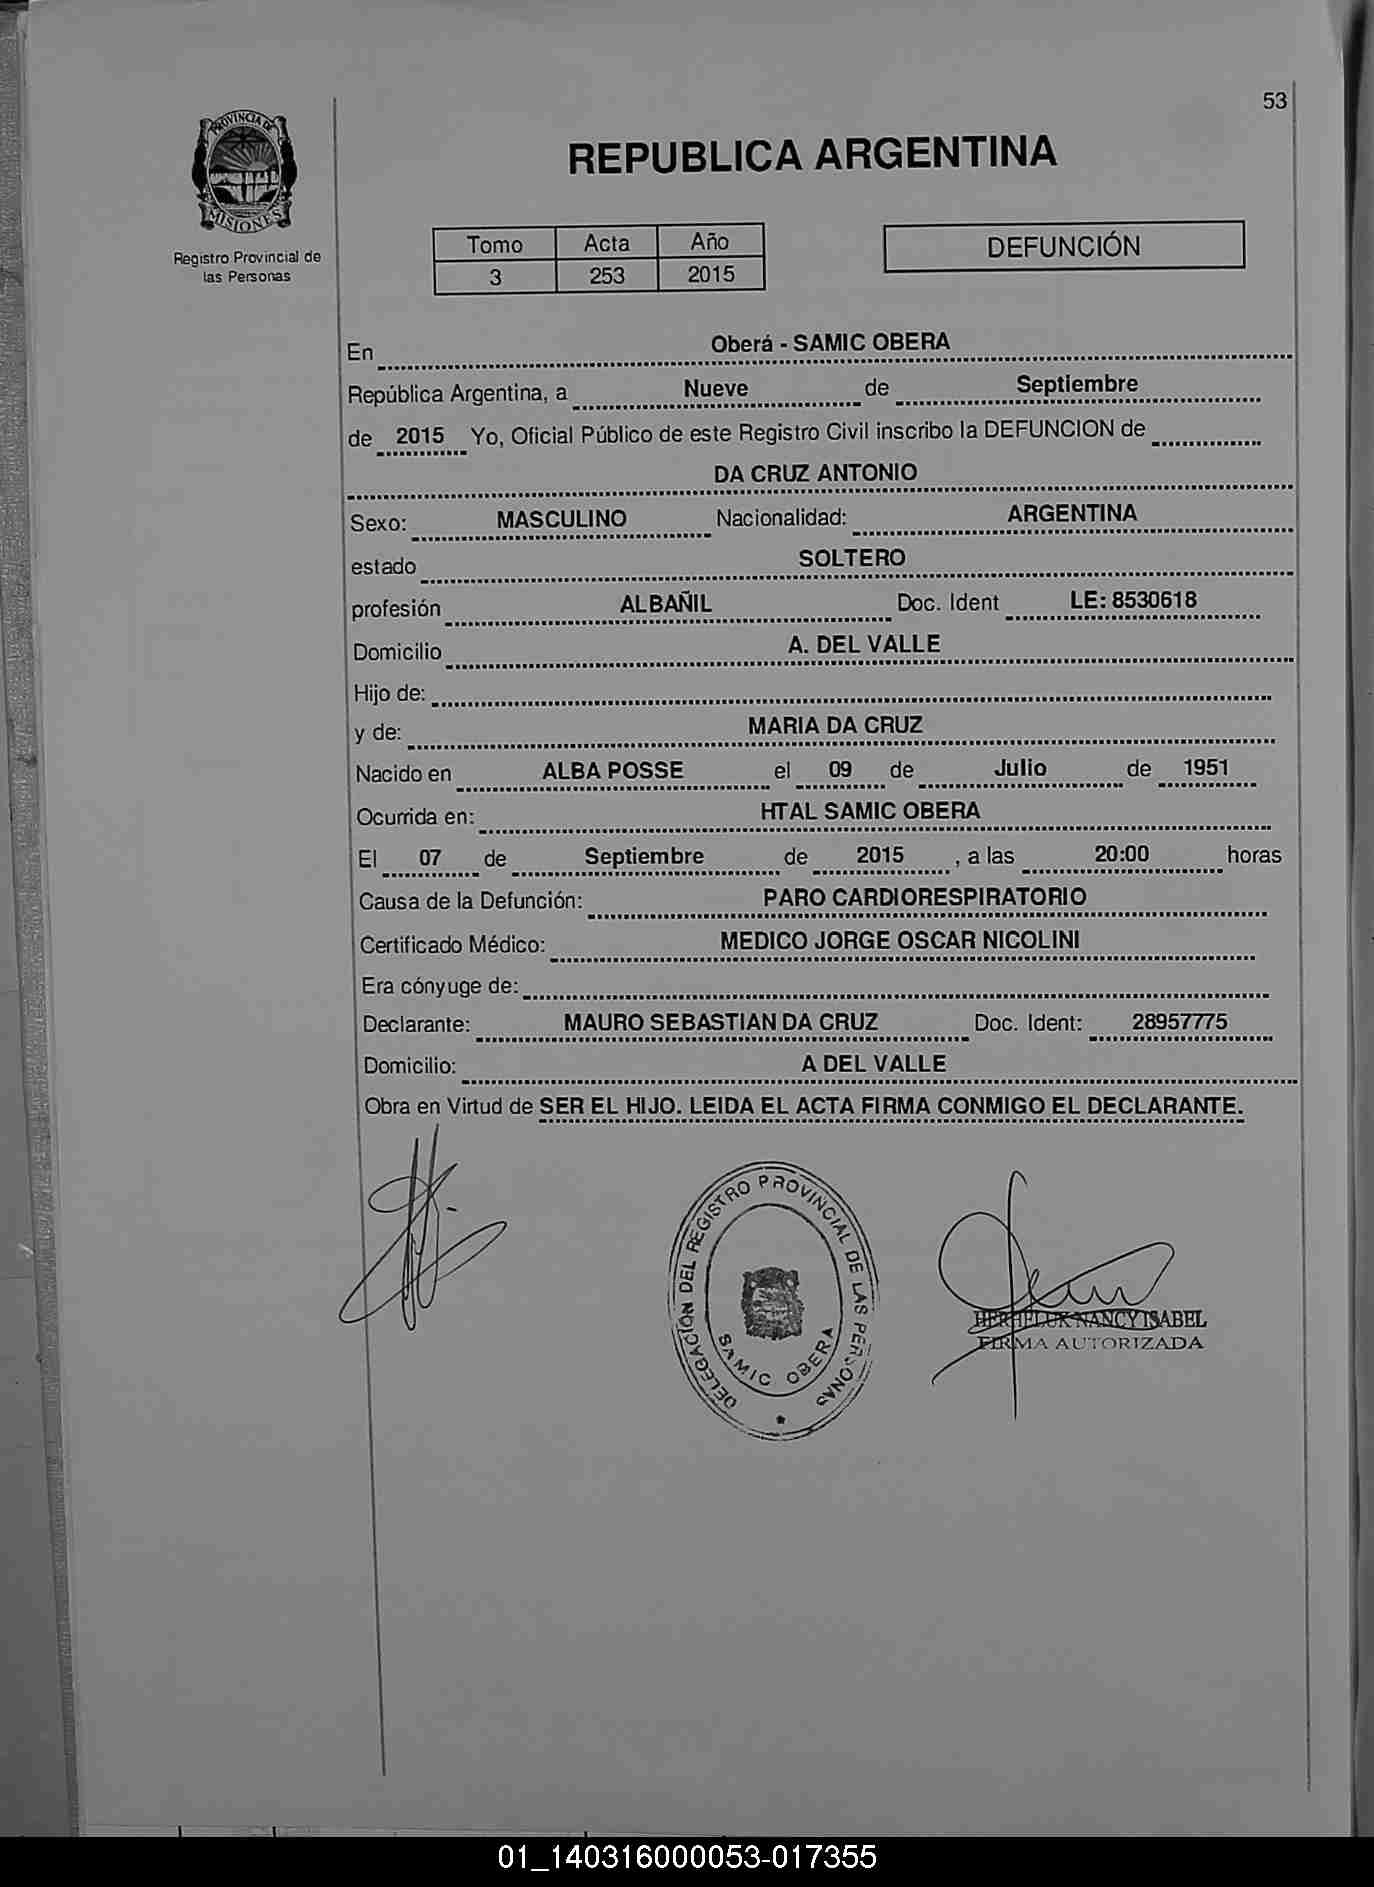 53
PROVINCIA DE
MISIONES
Registro Provincial de
las Personas
REPUBLICA ARGENTINA
Tomo Acta Año
3 253 2015
DEFUNCIÓN
En Oberá - SAMIC OBERA
República Argentina, a Nueve de Septiembre
de 2015 Yo, Oficial Público de este Registro Civil inscribo la DEFUNCION de
DA CRUZ ANTONIO
Sexo: MASCULINO Nacionalidad: ARGENTINA
estado SOLTERO
profesión ALBAÑIL Doc. Ident LE: 8530618
Domicilio A. DEL VALLE
Hijo de:
y de: MARIA DA CRUZ
Nacido en ALBA POSSE el 09 de Julio de 1951
Ocurrida en: HTAL SAMIC OBERA
El 07 de Septiembre de 2015 , a las 20:00 horas
Causa de la Defunción: PARO CARDIORESPIRATORIO
Certificado Médico: MEDICO JORGE OSCAR NICOLINI
Era cónyuge de:
Declarante: MAURO SEBASTIAN DA CRUZ Doc. Ident: 28957775
Domicilio: A DEL VALLE
Obra en Virtud de SER EL HIJO. LEIDA EL ACTA FIRMA CONMIGO EL DECLARANTE.
DELEGACIÓN DEL REGISTRO PROVINCIAL DE LAS PERSONAS
SAMIC OBERA
NANCY ISABEL
FIRMA AUTORIZADA
01_140316000053-017355